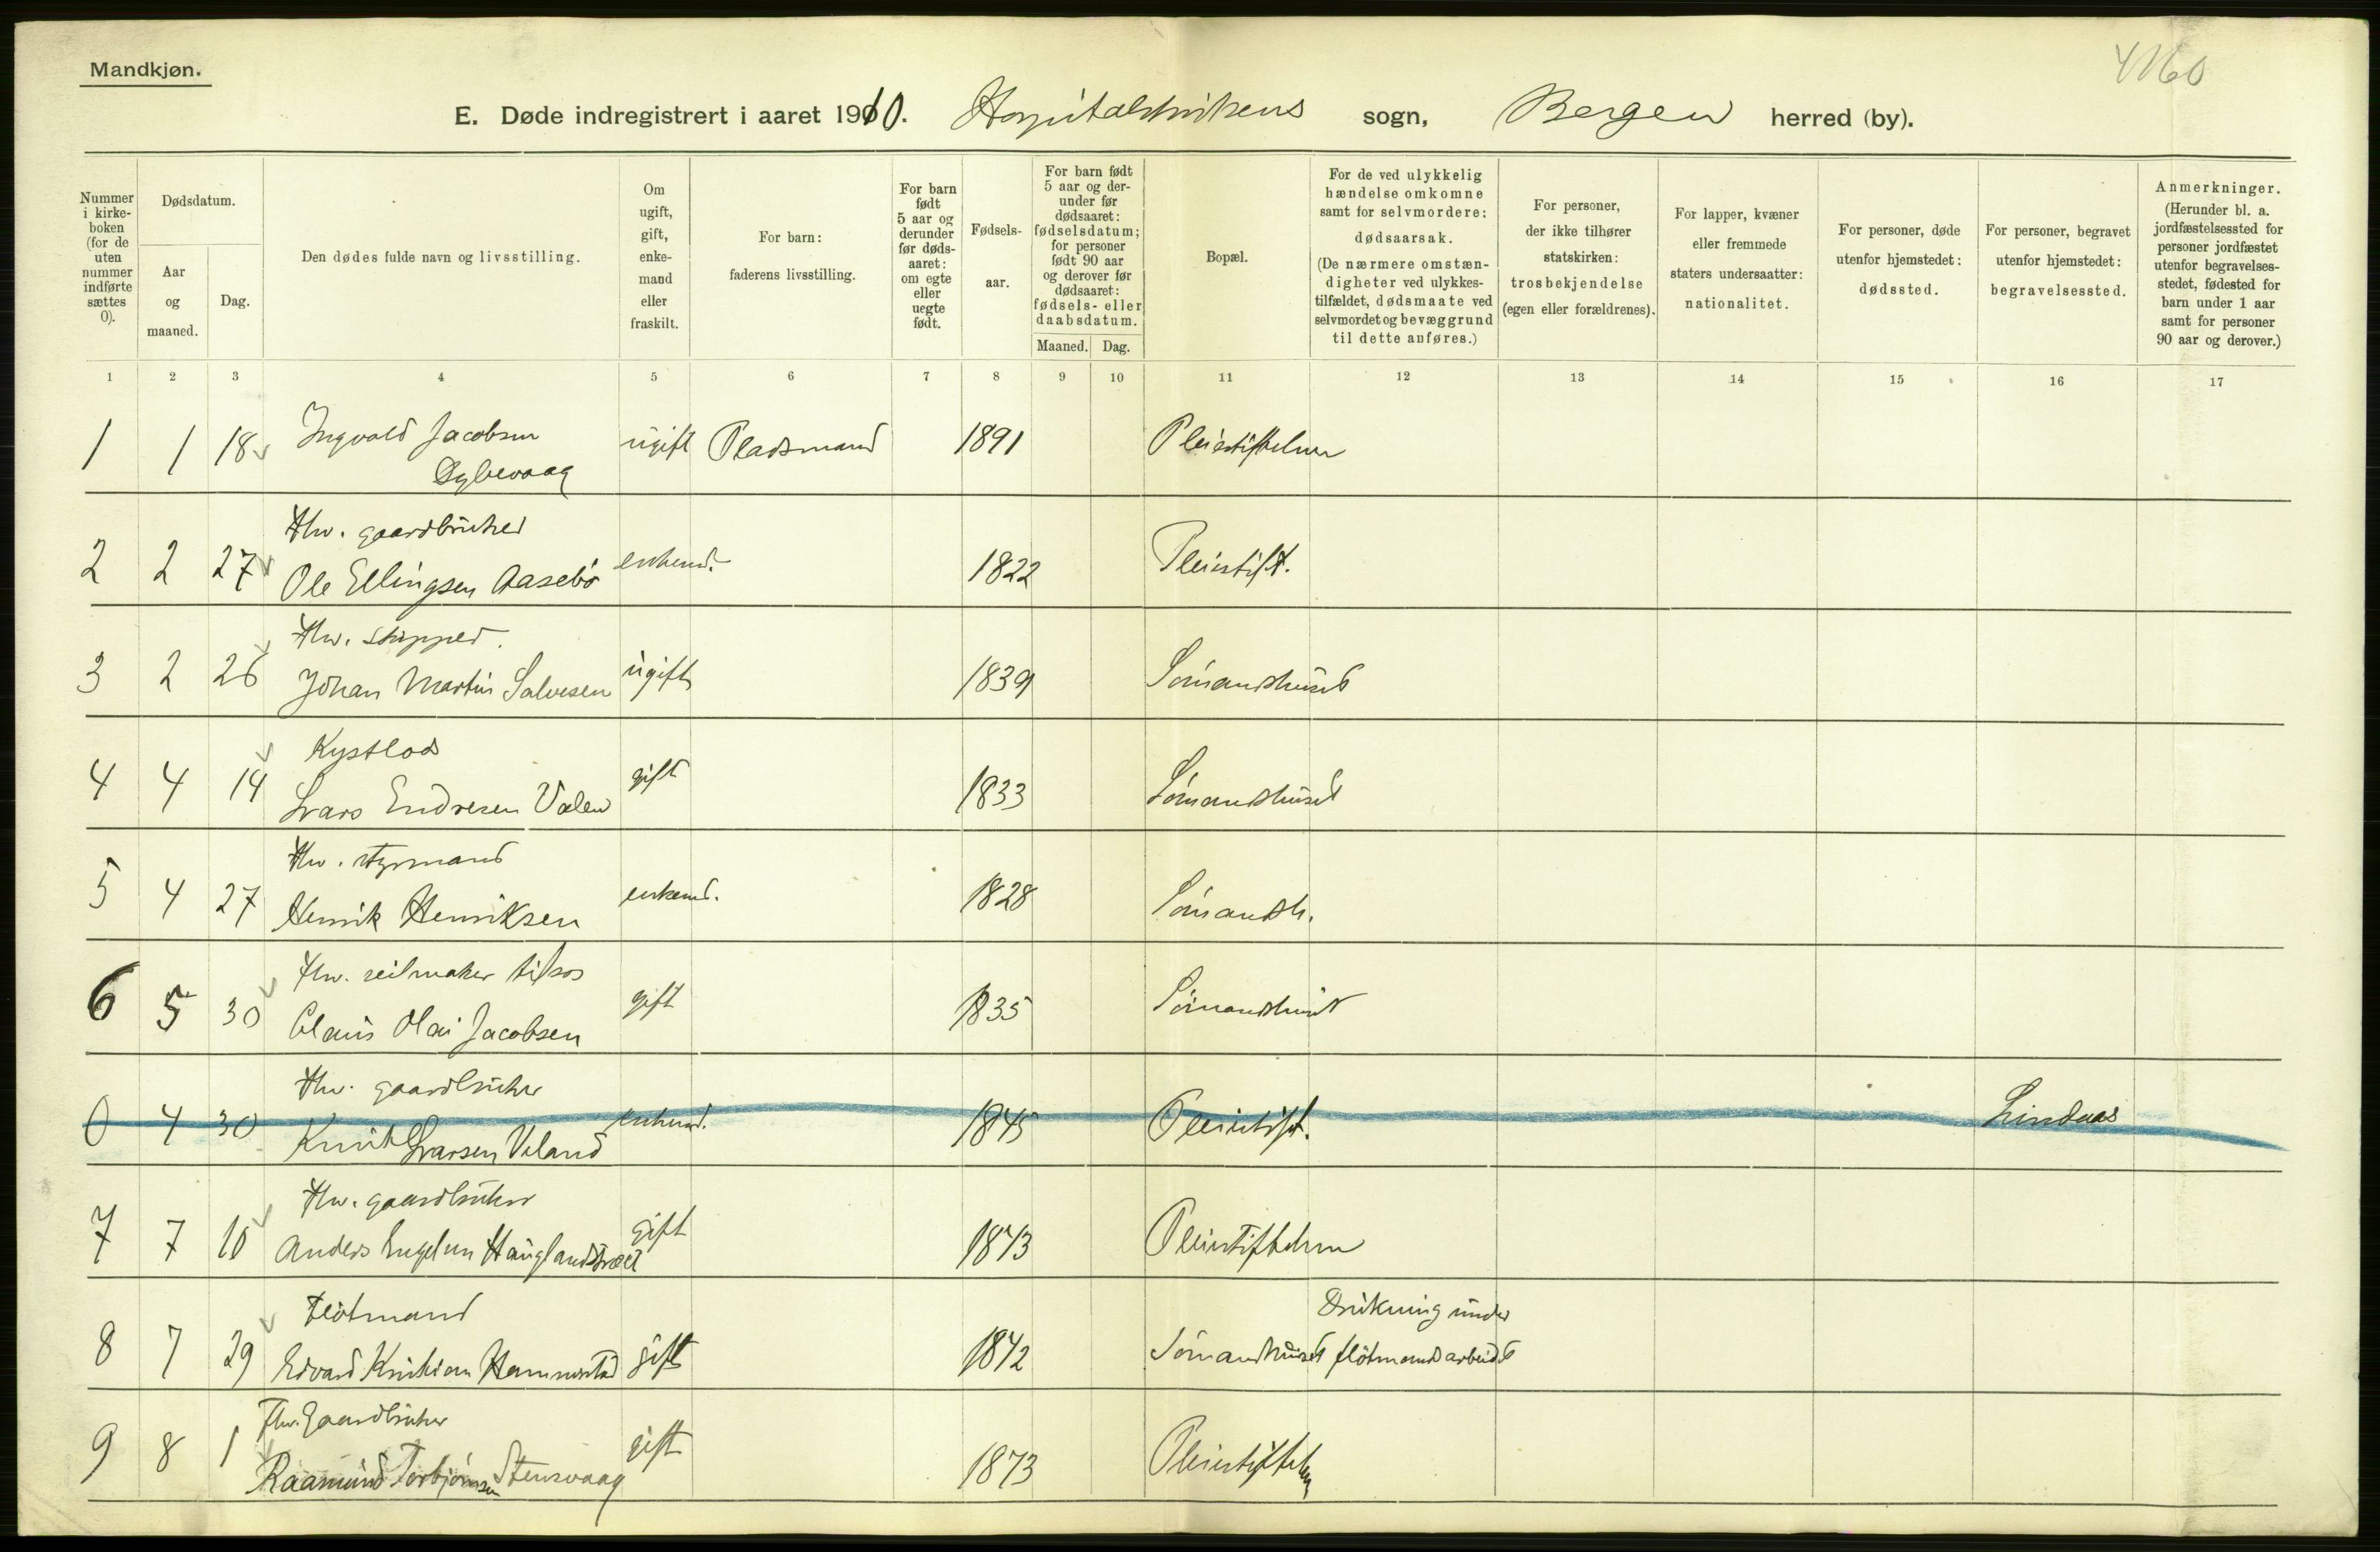 Mandkjøn.
4160
E. Døde indregistrert i aaret 1910. Hospitalskirkens sogn, Bergen herred (by).
Nummer i kirkeboken (for de uten nummer indførte sættes 0).
Dødsdatum.
Aar og maaned.
Dag.
Den dødes fulde navn og livsstilling.
Om ugift, gift, enkemand eller fraskilt.
For barn: faderens livsstilling.
For barn født 5 aar og derunder før dødsaaret: om egte eller uegte født.
Fødselsaar.
For barn født 5 aar og derunder før dødsaaret: fødselsdatum; for personer født 90 aar og derover før dødsaaret: fødsels- eller daabsdatum.
Maaned. Dag.
Bopæl.
For de ved ulykkelig hændelse omkomne samt for selvmordere: dødsaarsak. (De nærmere omstændigheter ved ulykkestilfældet, dødsmaate ved selvmordet og bevæggrund til dette anføres.)
For personer, der ikke tilhører statskirken: trosbekjendelse (egen eller forældrenes).
For lapper, kvæner eller fremmede staters undersaatter: nationalitet.
For personer, døde utenfor hjemstedet: dødssted.
For personer, begravet utenfor hjemstedet: begravelsessted.
Anmerkninger. (Herunder bl. a. jordfæstelsessted for personer jordfæstet utenfor begravelsesstedet, fødested for barn under 1 aar samt for personer 90 aar og derover.)
1 2 3 4 5 6 7 8 9 10 11 12 13 14 15 16 17
1 1 18 Ingvald Jacobsen ugift Pladsmand 1891 Pleiestiftelsen
Dybevaag
Fhv. gaardbruker
2 2 27 Ole Ellingsen Aasebö enkemd. 1822 Pleiestift.
Fhv. skipper.
3 2 26 Johan Martin Salvesen ugift 1839 Sömandshuset
Kystlods
4 4 14 Lars Endresen Valen gift 1833 Sömandshuset
Fhv. styrmand
5 4 27 Henrik Henriksen enkemd. 1828 Sömandsh.
Fhv. seilmaker tilsös
6 5 30 Claus Olai Jacobsen gift 1835 Sömandshuset
Fhv. gaardbruker
0 4 30 Knut Larsen Veland enkemd. 1845 Pleiestift. Lindaas
Fhv. gaardbruker
7 7 10 Anders Engelsen Hauglandstræet gift 1843 Pleiestiftelsen
Flötmand Drukning under
8 7 29 Edvard Kristian Hammerstad gift 1842 Sömandshuset flötmandsarbeidet
Fhv. Gaardbruker
9 8 1 Raamund Torbjörnsen Stensvaag gift 1873 Pleiestiftelsen